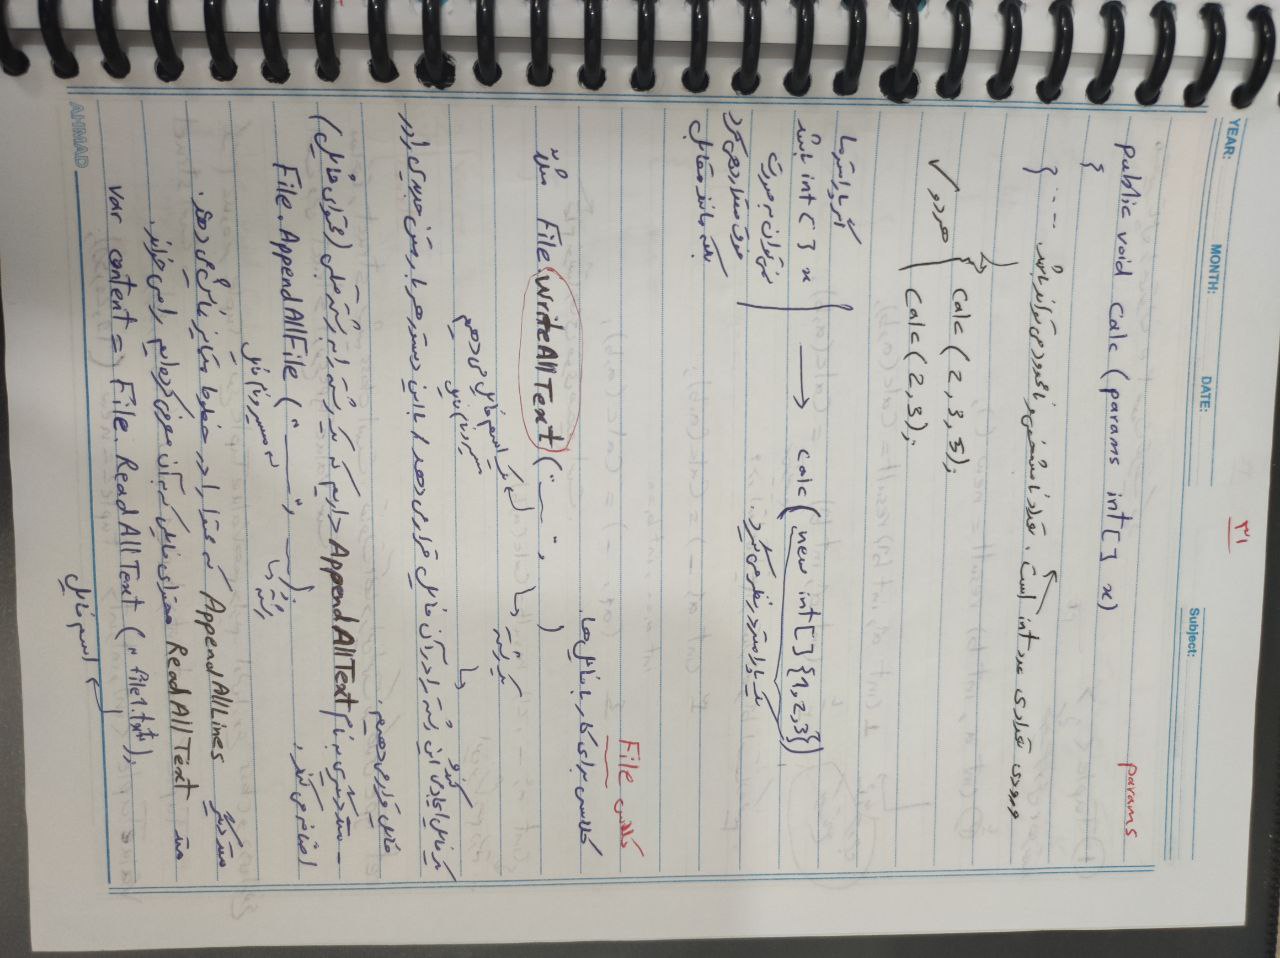 ۳۱
YEAR:
MONTH:
DATE:
Subject:
params
public void Calc (params int[] x)
{
} ....
ورودی تعدادی عدد int است. تعداد نامشخص و نامحدود می تواند باشد.
Calc (2,3,5);
Calc (2,3);
هر دو ✓
اگر پارامتر ما
int [] x باشد
نمی توان به صورت
فوق مقداردهی کرد
بلکه مانند مقابل
→ Calc (new int[]{1,2,3})
یک پارامتر در نظر می گیرد.
کلاس File
کلاسی برای کار با فایل ها.
مثلاً File WriteAllText (" ", )
یک رشته
یک اسم فایل می دهیم
مسیر و نام فایل
یک فایل ایجاد می کند و این رشته را در آن فایل قرار می دهد / با این دستور هر بار متن جدیدی را در
فایل قرار می دهیم.
- متد دیگری به نام AppendAllText داریم که یک رشته را به رشته قبلی (محتوای فایل)
اضافه می کند.
File.AppendAllFile (" ", );
رشته
مسیر و نام فایل
متد دیگر AppendAllLines که مقدار را در خطوط متمایز نمایش می دهد.
متد ReadAllText محتوای فایلی که به آن معرفی کرده ایم را می خواند.
var content = File. ReadAllText (" file1.txt");
اسم فایل
AHMAD